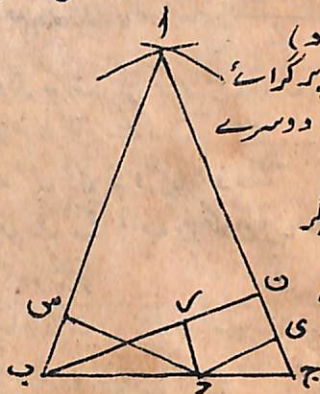 ا
و)
پر گرائے
دوسرے
ن
س
ر
ی
ب
ج